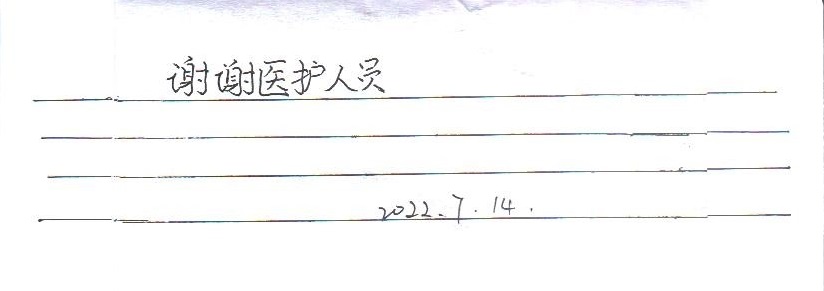 谢谢医护人员
2022.7.14.